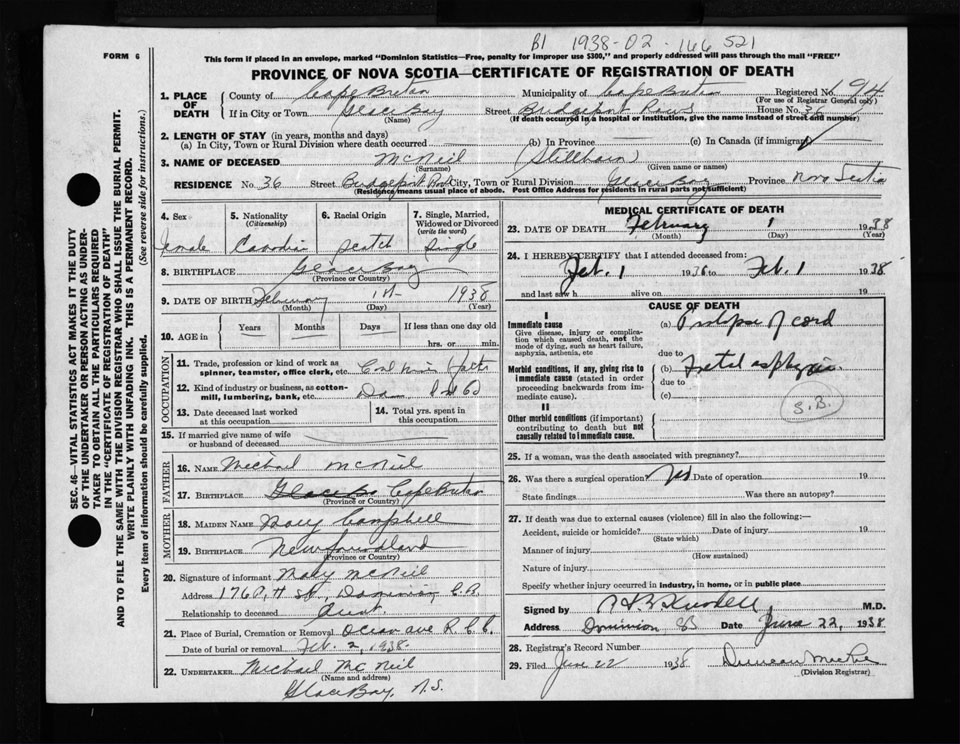 B1 1938-02-166521
FORM 6
This form if placed in an envelope, marked "Dominion Statistics—Free, penalty for improper use $300," and properly addressed will pass through the mail "FREE"
PROVINCE OF NOVA SCOTIA—CERTIFICATE OF REGISTRATION OF DEATH
1. PLACE OF DEATH
County of Cape Breton Municipality of Cape Breton Registered No. 94
(For use of Registrar General only)
If in City or Town Glace Bay Street Bridgeport Rows House No. 36
(Name) (If death occurred in a hospital or institution, give the name instead of street and number)
2. LENGTH OF STAY (in years, months and days)
(a) In City, Town or Rural Division where death occurred (b) In Province (c) In Canada (if immigrant)
3. NAME OF DECEASED McNeil (Stillborn)
(Surname) (Given name or names)
RESIDENCE No. 36 Street Bridgeport Row City, Town or Rural Division Glace Bay Province Nova Scotia
(Residence means usual place of abode. Post Office Address for residents in rural parts not sufficient)
4. Sex 5. Nationality (Citizenship) 6. Racial Origin 7. Single, Married, Widowed or Divorced (write the word)
female Canadian Scotch Single
8. BIRTHPLACE Glace Bay
(Province or Country)
9. DATE OF BIRTH February 1st 1938
(Month) (Day) (Year)
10. AGE in Years Months Days If less than one day old
hrs. or min.
OCCUPATION
11. Trade, profession or kind of work as spinner, teamster, office clerk, etc. Coal Mine
12. Kind of industry or business, as cotton-mill, lumbering, bank, etc. Dom
13. Date deceased last worked at this occupation
14. Total yrs. spent in this occupation
15. If married give name of wife or husband of deceased
FATHER
16. NAME Michael McNeil
17. BIRTHPLACE Glace Bay Cape Breton
(Province or Country)
MOTHER
18. MAIDEN NAME Mary Campbell
19. BIRTHPLACE Newfoundland
(Province or Country)
20. Signature of informant Mary McNeil
Address 176 St., Dominion, C.B.
Relationship to deceased Aunt
21. Place of Burial, Cremation or Removal Ocean ave R.C.C.
Date of burial or removal Feb. 2, 1938
22. UNDERTAKER Michael McNeil
(Name and address)
Glace Bay, N.S.
MEDICAL CERTIFICATE OF DEATH
23. DATE OF DEATH February 1 1938
(Month) (Day) (Year)
24. I HEREBY CERTIFY that I attended deceased from:
Feb. 1 1938 to Feb. 1 1938
and last saw h alive on 19
CAUSE OF DEATH
I
Immediate cause
Give disease, injury or complication which caused death, not the mode of dying, such as heart failure, asphyxia, asthenia, etc
(a) Prolapse of cord
due to
Morbid conditions, if any, giving rise to immediate cause (stated in order proceeding backwards from immediate cause).
(b) Foetal asphyxia
due to
(c)
S.B.
II
Other morbid conditions (if important) contributing to death but not causally related to immediate cause.
25. If a woman, was the death associated with pregnancy?
26. Was there a surgical operation? No Date of operation 19
State findings Was there an autopsy?
27. If death was due to external causes (violence) fill in also the following:—
Accident, suicide or homicide? Date of injury 19
(State which)
Manner of injury
(How sustained)
Nature of injury
Specify whether injury occurred in industry, in home, or in public place
Signed by M.D.
Address Dominion CB Date June 22, 1938
28. Registrar's Record Number
29. Filed June 22 1938 Duncan
(Division Registrar)
SEC. 46—VITAL STATISTICS ACT MAKES IT THE DUTY OF THE UNDERTAKER OR PERSON ACTING AS UNDERTAKER TO OBTAIN ALL THE PARTICULARS REQUIRED IN THE "CERTIFICATE OF REGISTRATION OF DEATH" AND TO FILE THE SAME WITH THE DIVISION REGISTRAR WHO SHALL ISSUE THE BURIAL PERMIT.
WRITE PLAINLY WITH UNFADING INK. THIS IS A PERMANENT RECORD.
Every item of information should be carefully supplied. (See reverse side for instructions.)